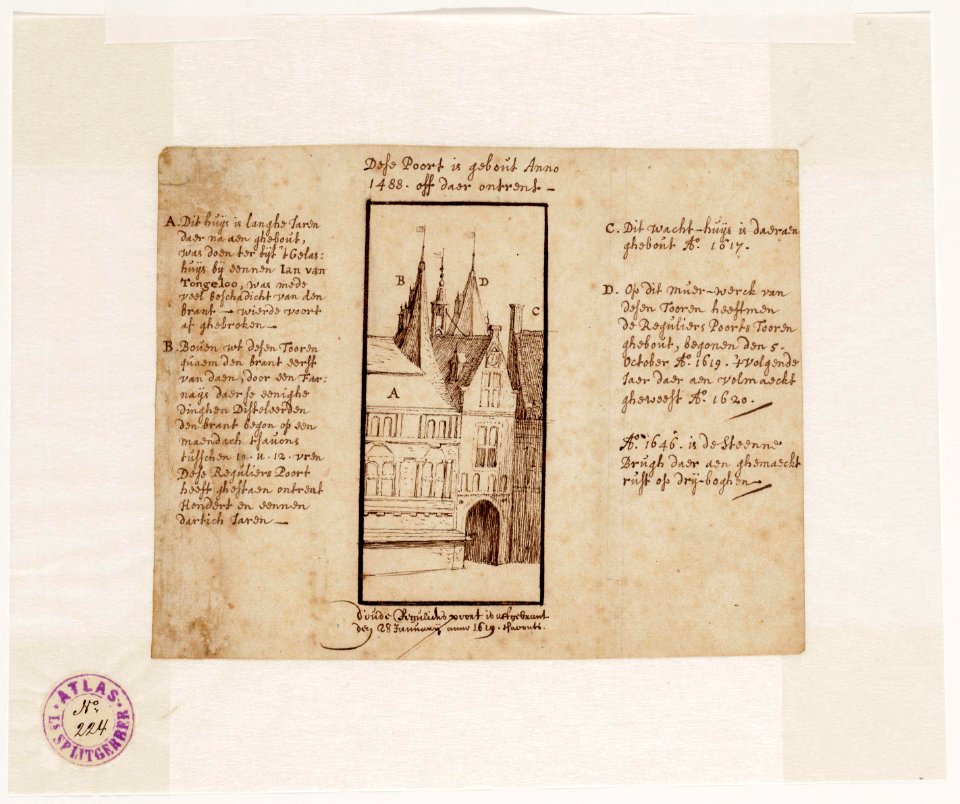 Dese Poort is gebout Anno
1488. off daer ontrent —
A. Dit huijs is langhe Iaren
daer na aen ghebout,
was doen ter tijt 't Gelas:
huijs bij eennen Ian van
Tongeloo, was mede
veel beschadicht van den
brant — wierde voort
af ghebroken —
B. Boven wt desen Tooren
quaem den brant eerst
van daen, door een Far:
naijs daer se eenighe
dinghen Disteleerden
den brant begon op een
maendach t'savons
tusschen 11. u. 12. vren
Dese Reguliers Poort
heeft ghestaen ontrent
Hondert en eennen
dartich Iaren —
B
D
C
A
C. Dit wacht-huijs is daeraen
ghebout Ao. 1617.
D. Op dit muer-werck van
desen Tooren heeftmen
de Reguliers Poorts Tooren
ghebout, begonen den 5.
October Ao. 1619. 'tvolgende
Iaer daer aen volmaeckt
gheweest Ao. 1620.
Ao. 1646. is de steenne
Brugh daer aen ghemaeckt
rust op drij-boghen —
d'oude Reguliers poort is affgebrant
den 28 Januarij anno 1619. t'savonts.
ATLAS
No.
224
Is SPLITGERBER